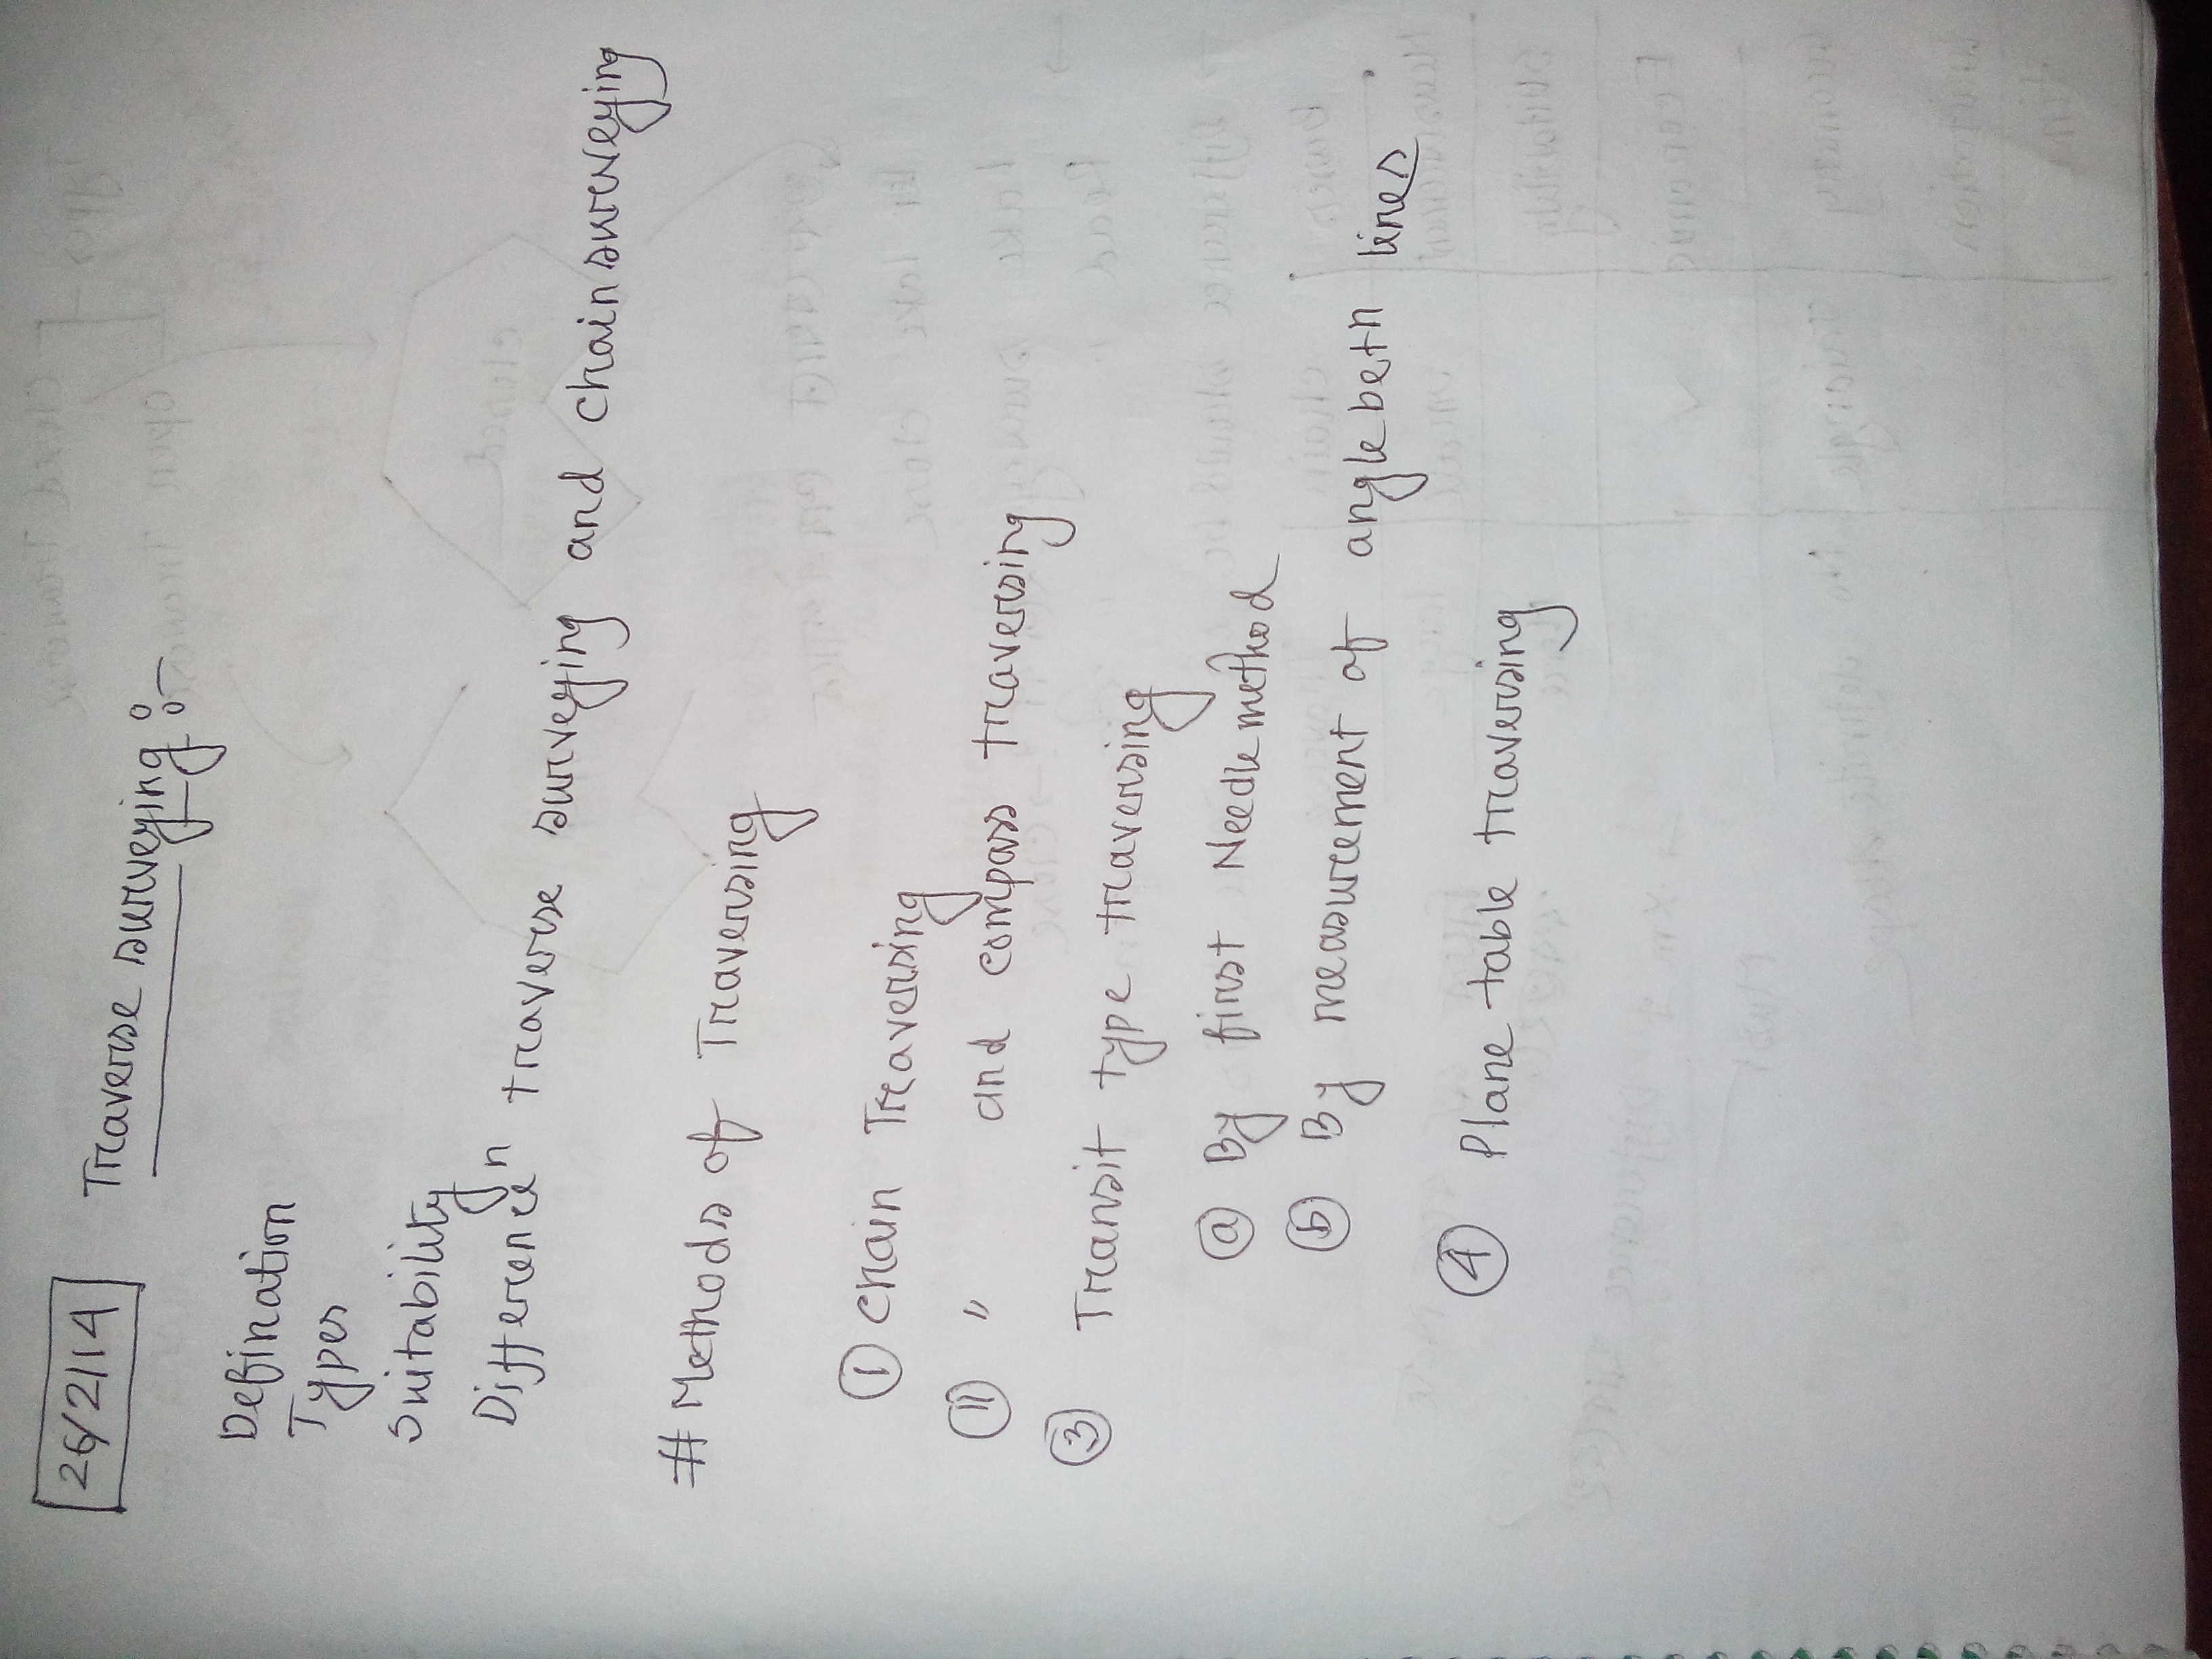 26/2/14
Traverse surveying :-
Defination
Types
Suitability
Difference n traverse surveying and chain surveying
# Methods of Traversing
① Chain Traversing
⑪ " and compass traversing
③ Transit type traversing
ⓐ By first Needle method
ⓑ By measurement of angle betn lines
④ Plane table traversing